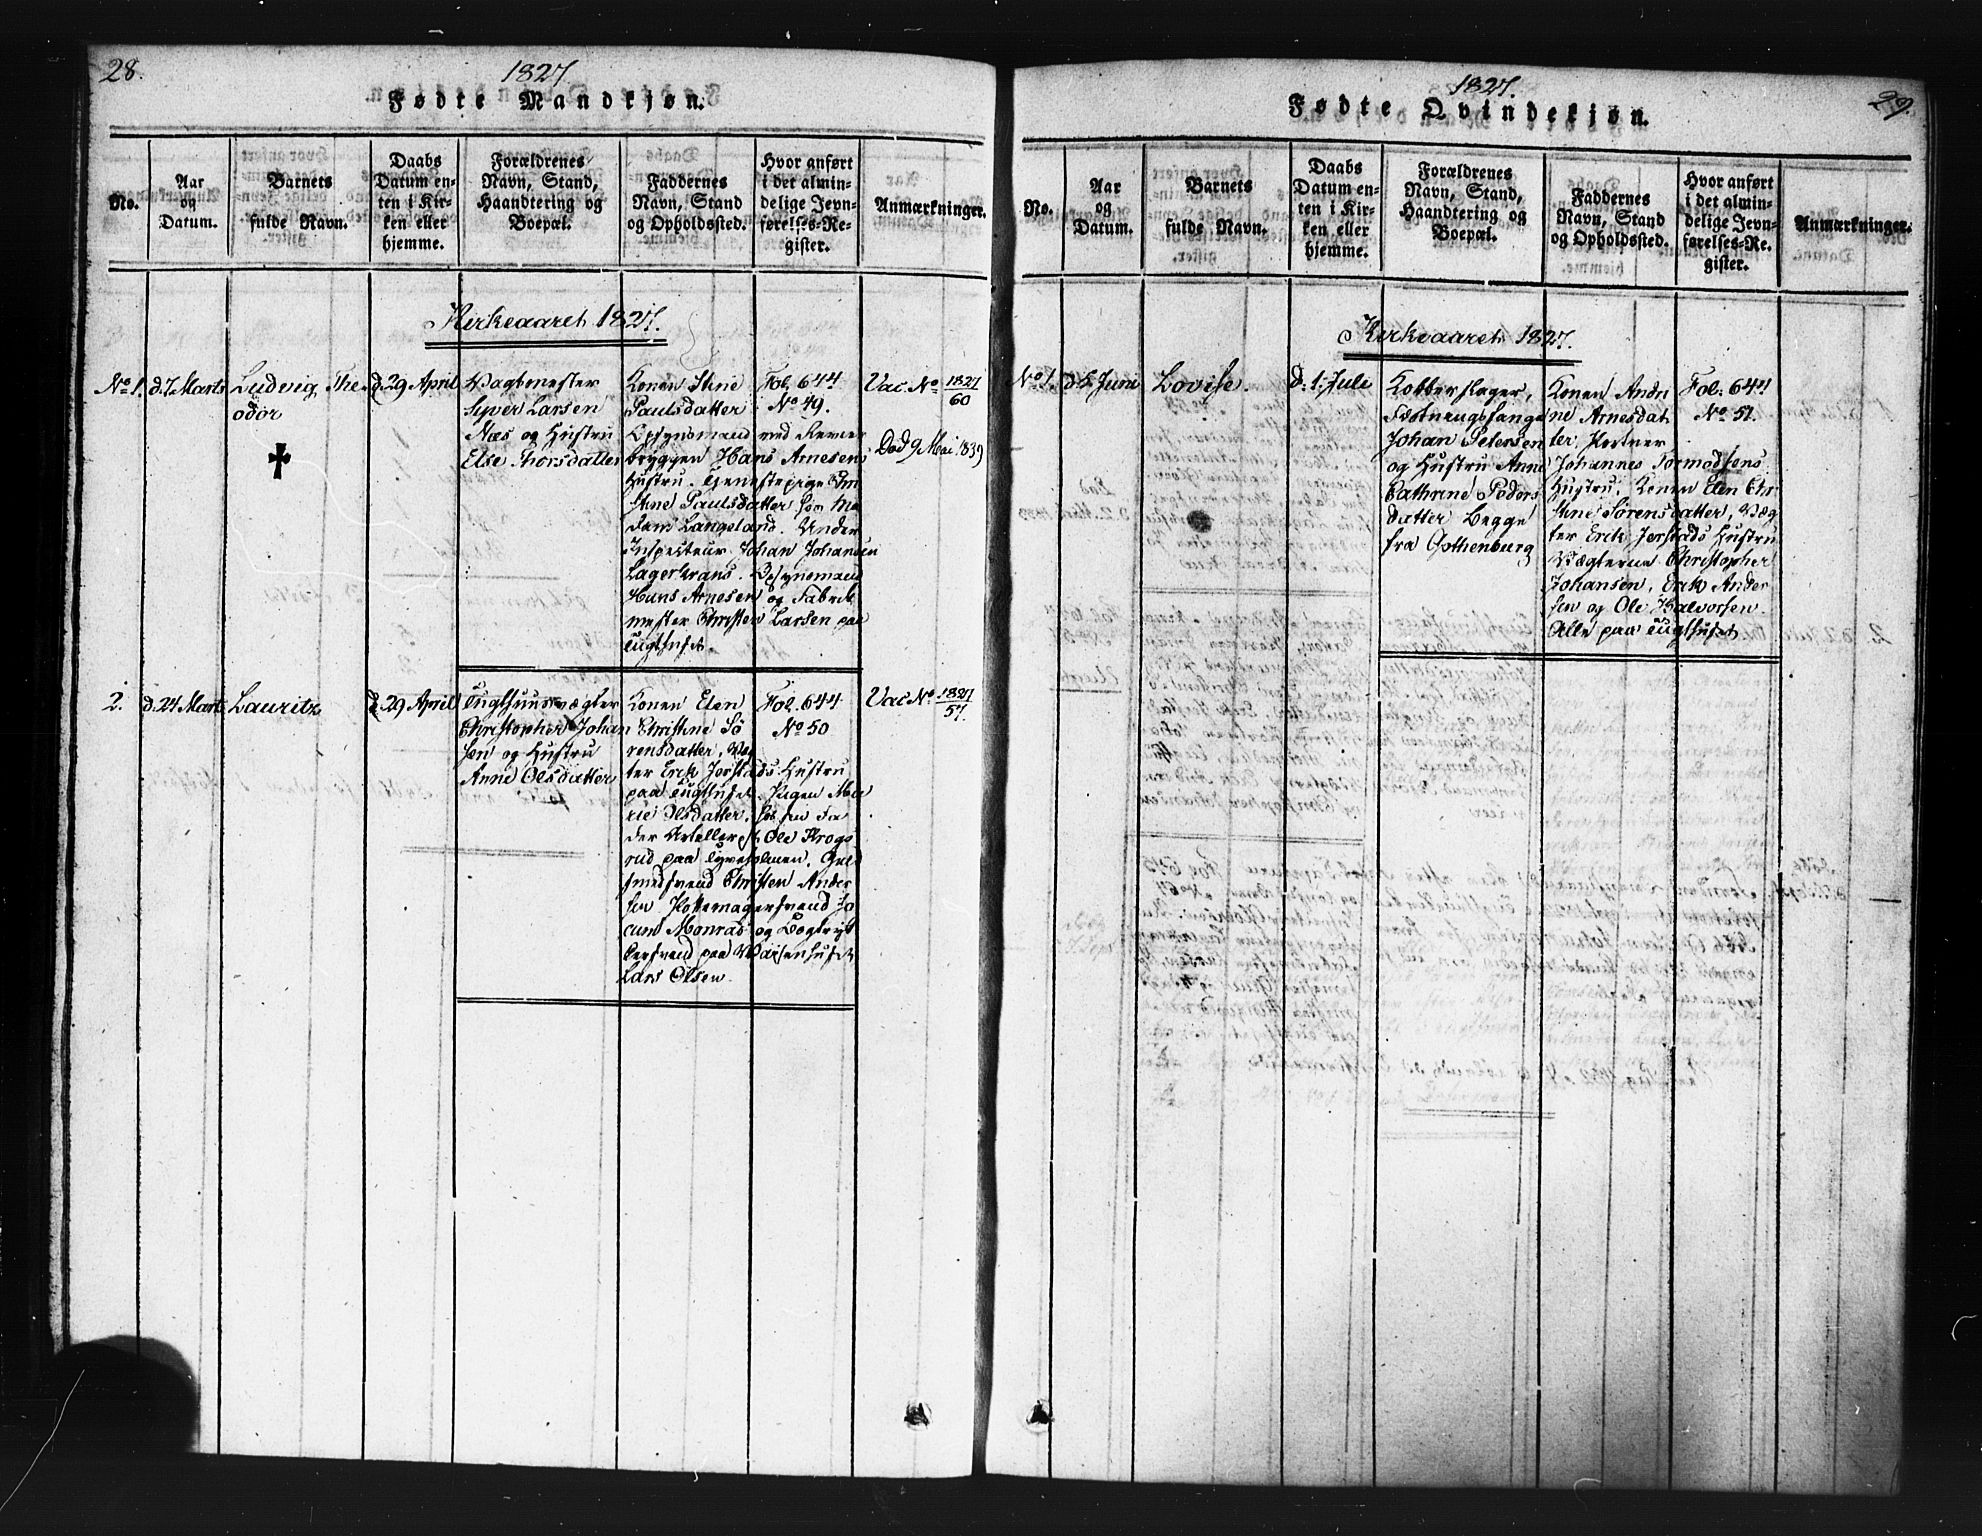 28.
1827
Fødte Mandkjøn.
No.
Aar og Datum.
Barnets fulde Navn.
Daabs Datum enten i Kirken eller hjemme.
Forældrenes Navn, Stand, Haandtering og Boepæl.
Faddernes Navn, Stand og Opholdssted.
Hvor anført i det almindelige Jevnførelses-Register.
Anmærkninger.
Kirkeaaret 1827.
No 1.
d. 7 Marts
Ludvig The
odor
d 29 April
Vagtmester
Syver Larsen
Næs og Hustru
Else Thorsdatter
Konen Stine
Paulsdatter
Opsynsmand ved
bryggen Hans Arnesens
Hustru. Tjenestepige
Stine Paulsdatter hos Ma
dam Langeland. Under
Inspecteur Johan Johansen
Lagerkrans. Opsynsmand
Hans Arnesen og Fabrik
mester Christen Larsen paa
Tugthuset.
Fol. 644
No 49.
Vac No 1827/60
Død 9 Mai 1839
2.
d. 24 Marts
Lauritz
d 29 April
Tugthuusvægter
Christopher Johan
sen og Hustru
Anne Olsdatter
Konen Elen
Christine Sø
rensdatter, Væg
ter Erik Jorstads Hustru
paa Tugthuset. Pigen Ma
rie Olsdatter, hos sin Fa
der Ole Krogs
rud paa Tyveholmen. Gul
smedsvend Christen Ander
sen Pottemagersvend Jo
cum Monrad og Bogtryk
kersvend paa Waisenhuset
Lars Olsen.
Fol. 644
No 50
Vac No 1827/57.
1827.
29.
Fødte Qvindekjøn.
No.
Aar og Datum.
Barnets fulde Navn.
Daabs Datum enten i Kirken eller hjemme.
Forældrenes Navn, Stand, Haandtering og Boepæl.
Faddernes Navn, Stand og Opholdssted.
Hvor anført i det almindelige Jevnførelses-Register.
Anmærkninger.
Kirkeaaret 1827.
No 1.
Juni
Lovise.
d. 1. Juli
Kobberslager,
Fæstningsfange
Johan Petersen
og Hustru Anne
Cathrine Peders
datter Begge
fra Gothenburg
Konen Andri
ne Arnesdat
ter, Portner
Johannes Tormodsens
Hustru. Konen Elen Chri
stine Sørensdatter, Væg
ter Erik Jorstads Hustru
Vægterne Christopher
Johansen, Erik Ander
sen og Ole Halvorsen.
Alle paa Tugthuset
Fol. 644
No 51.